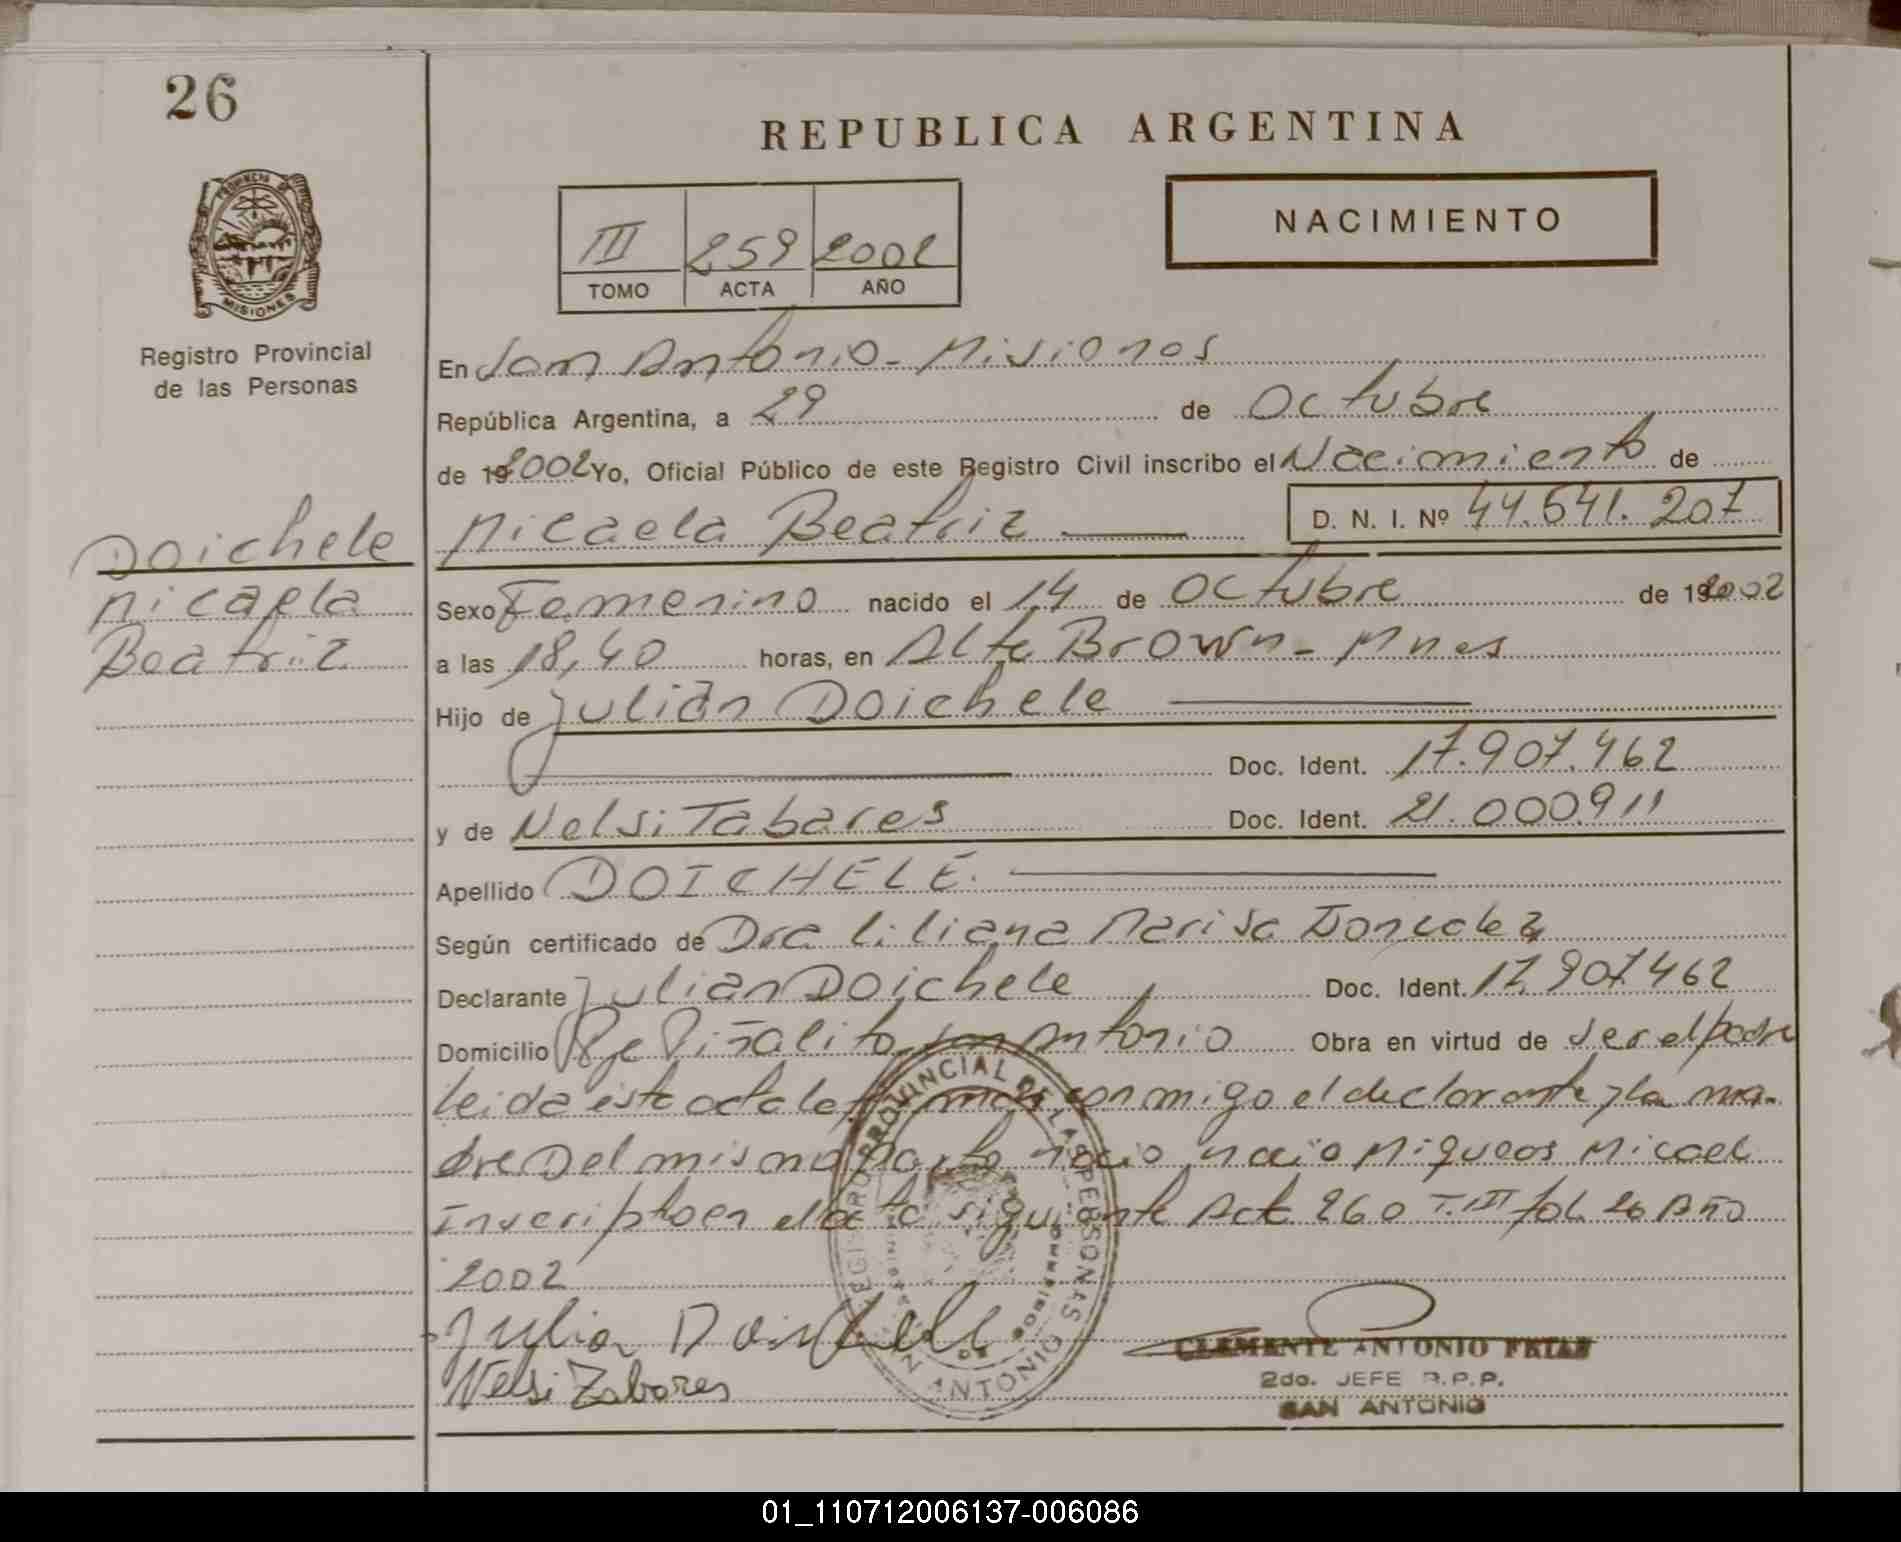 26
REPUBLICA ARGENTINA
NACIMIENTO
III 259 2002
TOMO ACTA AÑO
PROVINCIA DE MISIONES
Registro Provincial
de las Personas
En San Antonio - Misiones
República Argentina, a 29 de Octubre
de 192002 Yo, Oficial Público de este Registro Civil inscribo el Nacimiento de
Micaela Beatriz D. N. I. Nº 44.641.207
Doichele
Micaela
Beatriz
Sexo Femenino nacido el 14 de Octubre de 192002
a las 18,40 horas, en Alte Brown - Mnes
Hijo de Julián Doichele
Doc. Ident. 17.907.462
y de Nelsi Tabares Doc. Ident. 21.000911
Apellido DOICHELE.
Según certificado de Dra Liliana Marisa Gonzalez
Declarante Julian Doichele Doc. Ident. 17.907.462
Domicilio Pje Piñalito San Antonio Obra en virtud de ser el padre
leida esta acta la conmigo el declarante y la ma-
dre Del mismo parto nacio nacio Miqueas Micael
Inscripto en el acta siguiente Act 260 T. III fol. 26 Año
2002
Julian Doichele
Nelsi Zabares
REGISTRO PROVINCIAL DE LAS PERSONAS
SAN ANTONIO
CLEMENTE ANTONIO
2do. JEFE R.P.P.
SAN ANTONIO
01_110712006137-006086